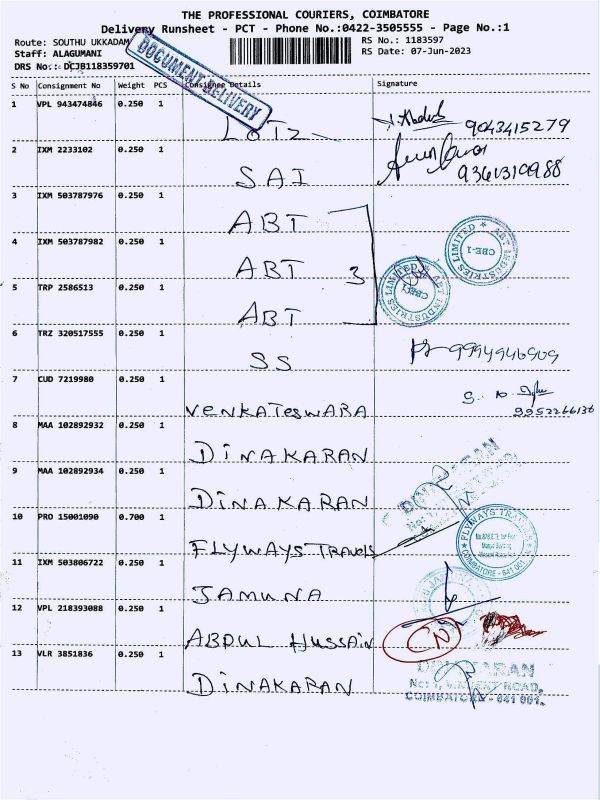 THE PROFESSIONAL COURIERS, COIMBATORE
Delivery Runsheet - PCT - Phone No.:0422-3505555 - Page No.:1
Route: SOUTHU UKKADAM
RS No.: 1183597
Staff: ALAGUMANI
RS Date: 07-Jun-2023
DRS No.: DCJB118359701
DOCUMENT DELIVERY
S No Consignment No Weight PCS Consignee Details Signature
1 VPL 943474846 0.250 1 LOTZ 9043415279
2 IXM 2233102 0.250 1 SAI
3 IXM 503787976 0.250 1 ABT
4 IXM 503787982 0.250 1 ABT 3
ABT INDUSTRIES LIMITED
CBE-1
ABT INDUSTRIES LIMITED
CBE-1
5 TRP 2586513 0.250 1 ABT
6 TRZ 320517555 0.250 1 SS
7 CUD 7219980 0.250 1 VENKATESWARA 9952266136
8 MAA 102892932 0.250 1 DINAKARAN
9 MAA 102892934 0.250 1 DINAKARAN
DINAKARAN
10 PRO 15001090 0.700 1 FLYWAYS TRAVELS
FLYWAYS TRAVELS
COIMBATORE - 641 001
11 IXM 503806722 0.250 1 JAMUNA
12 VPL 218393088 0.250 1 ABDUL HUSSAIN CN
13 VLR 3851836 0.250 1 DINAKARAN
DINAKARAN
ROAD,
COIMBATORE - 641 001.